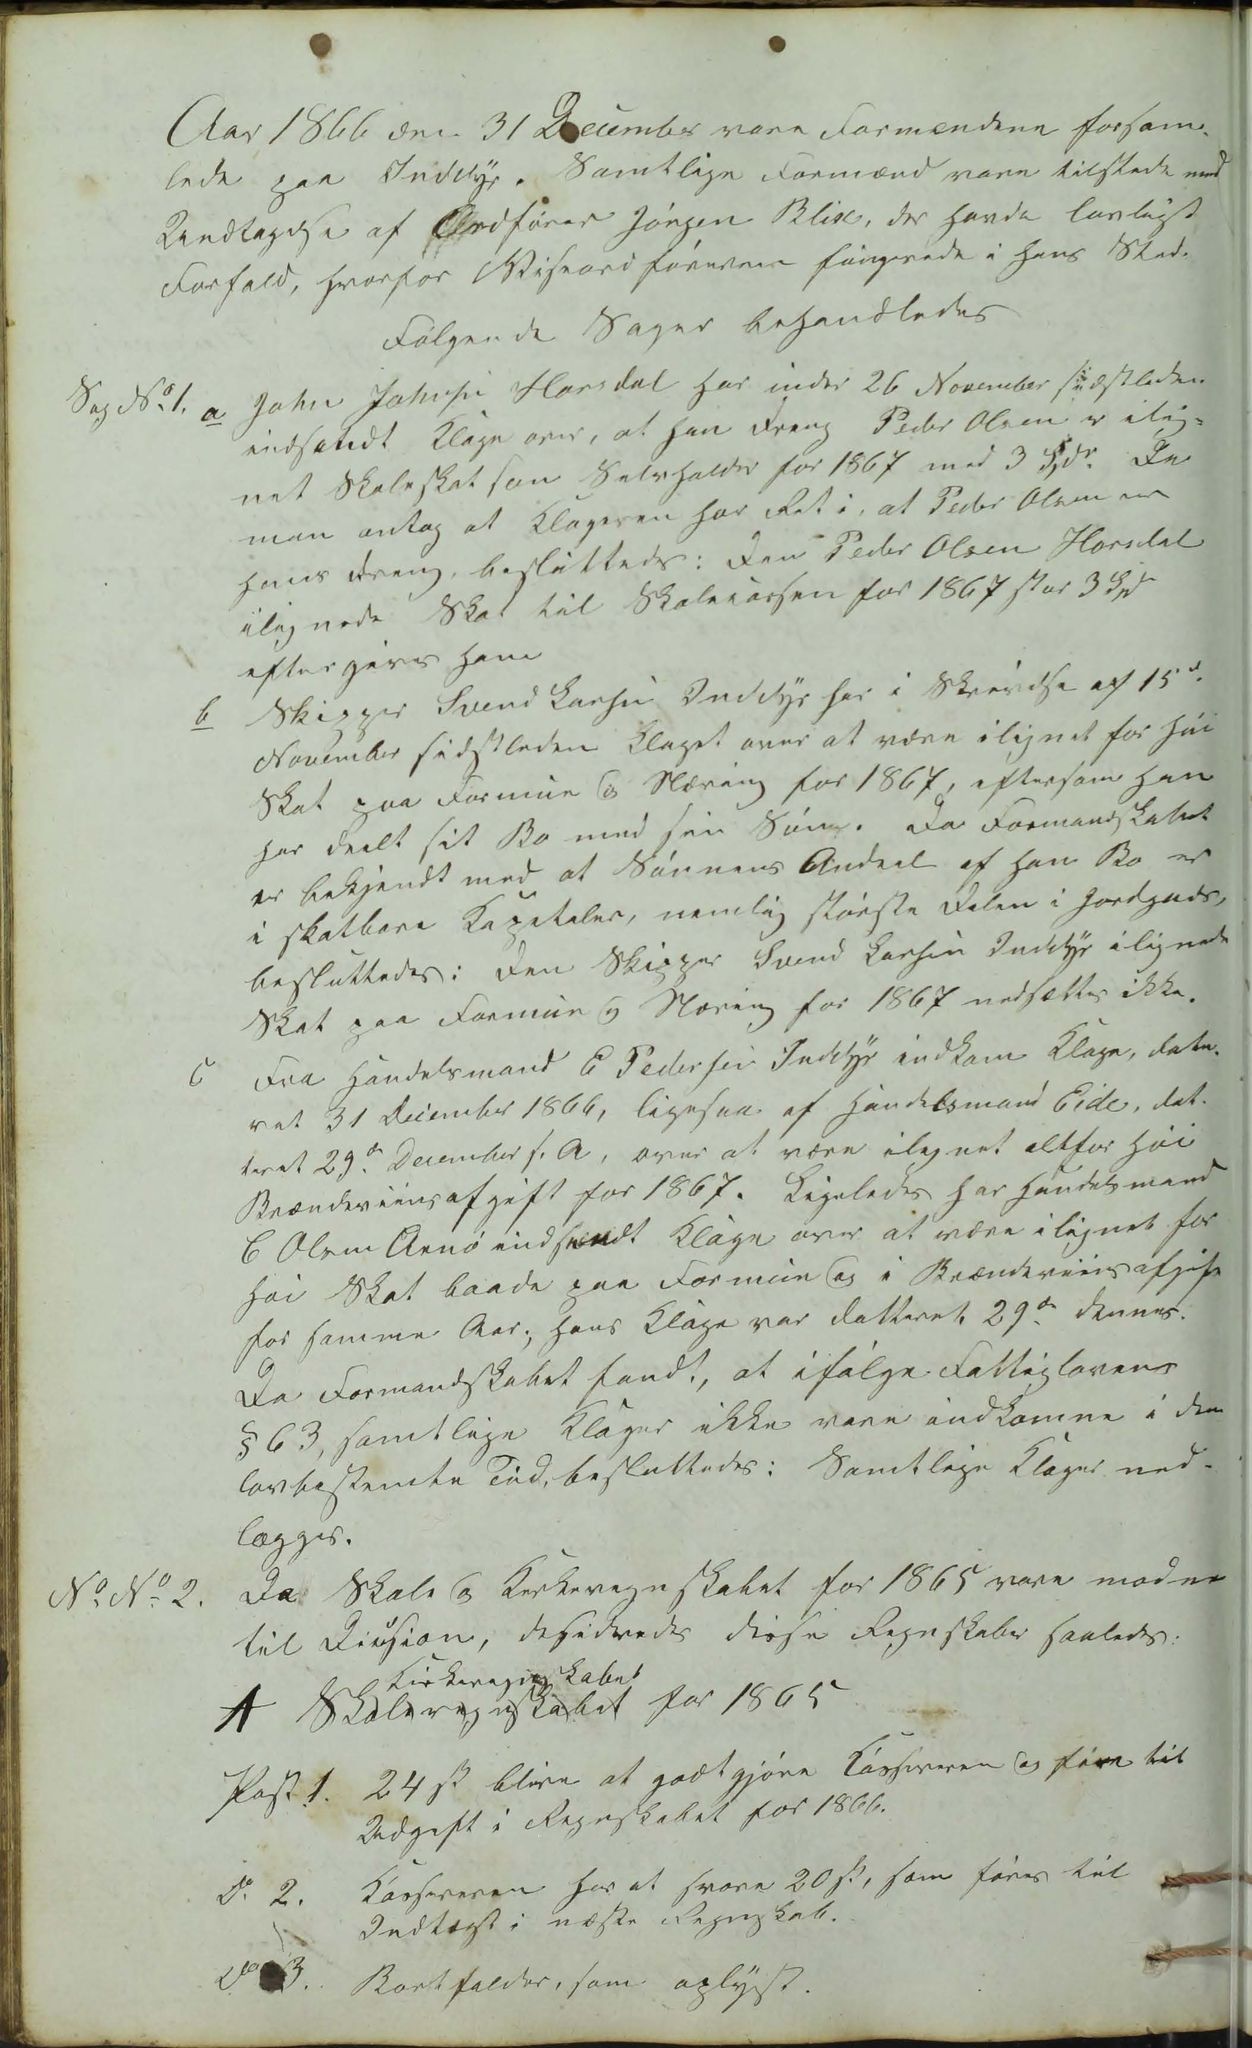 Aar 1866 den 31 December vare Formændene forsam-
lede paa Inddyr. Samtlige Formænd vare tilstede med
Undtagelse af Ordfører Jørgen Blix, der havde lovligt
Forfald, hvorfor Viseordføreren fungerede i hans Sted.
Følgende Sager behandledes
Sag No. 1. a John Johnsen Horsdal har under 26 November sidstleden
indsendt Klage over, at han Dreng Peder Olsen er ilig-
net Skoleskat som Selvholder for 1867 med 3 Spdr. Da
man antog at Klageren har Ret i, at Peder Olsen er
hans Dreng, besluttedes: Den Peder Olsen Horsdal
ilignede Skat til Skolecassen for 1867 stor 3 Spd
eftergives ham
b Skipper Svend Larsen Inddyr har i Skrivelse af 15d.
November sidstleden klaget over at være ilignet for høi
Skat paa Formue og Næring for 1867, eftersom han
har deelt sit Bo med sin Søn. Da Formandskabet
er bekjendt med at Sønnens Andeel af han Bo er
i skatbare Kapitaler, nemlig største Delen i Jordgods,
besluttedes: Den Skipper Svend Larsen Inddyr ilignede
Skat paa Formue og Næring for 1867 nedsættes ikke.
c Fra Handelsmand C Pedersen Inddyr indkom Klage, date-
ret 31 December 1866, ligesaa af Handelsmand Eide, dat-
teret 29de December s. A, over at være ilignet altfor høi
Brændeviinsafgift for 1867. Ligeledes har Handelsmand
C Olsen Arnø indsendt Klage over at være ilignet for
høi Skat baade paa Formue og i Brændeviinsafgift
for samme Aar; hans Klage var datteret 29de dennes.
Da Formandskabet fandt, at ifølge Fattiglovens
§ 63, samtlige Klager ikke vare indkomne i den
lovbestemte Tid, besluttedes: Samtlige Klager ned-
lægges.
No. No. 2. Da Skole og Kirkeregnskabet for 1865 vare modne
til Decision, desideredes disse Regnskaber saaledes:
Kirkeregnskabet
A Skoleregnskabet for 1865
Post 1. 24 sk blive at godtgjøre Kassereren og føre til
Udgift i Regnskabet for 1866.
Do 2. Kassereren har at svare 20 sk, som føres til
Indtægt i næste Regnskab.
Do 3. Bortfalder, som oplyst.